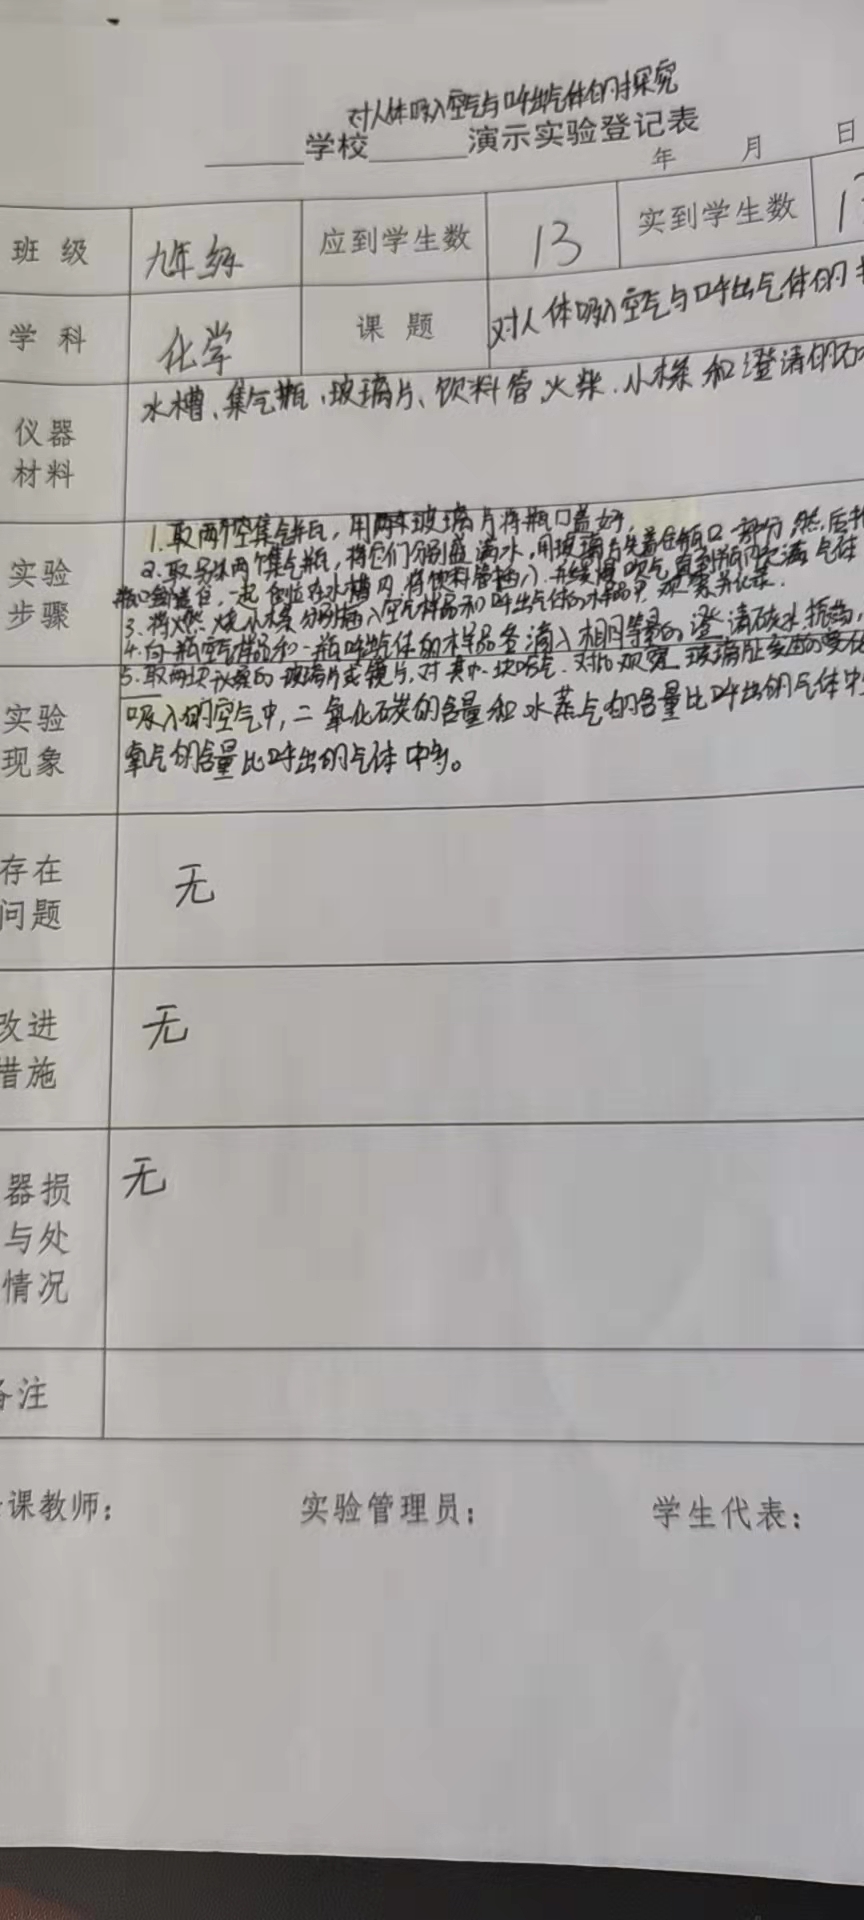 对人体吸入空气与呼出气体的探究
学校 演示实验登记表
年 月 日
班级 九年级 应到学生数 13 实到学生数
学科 化学 课题 对人体吸入空气与呼出气体的
仪器材料 水槽、集气瓶、玻璃片、饮料管、火柴、小木条和澄清的石
实验步骤
1.取两个空集气瓶,用两块玻璃片将瓶口盖好,
2.取另外两个集气瓶,将它们分别盛满水,用玻璃片先盖住瓶口一部分,然后
瓶口全盖住,一起倒立在水槽内,将饮料管插入,并缓慢吹气直到瓶内充满气体
3.将燃烧小木条分别插入空气样品和呼出气体的样品中,观察并记录.
4.向一瓶空气样品和一瓶呼出气体的样品各滴入相同等量的澄清石灰水,振荡,
5.取两块干燥的玻璃片或镜片,对其中一块哈气.对比观察玻璃片
实验现象 吸入的空气中,二氧化碳的含量和水蒸气的含量比呼出的气体中
氧气的含量比呼出的气体中多。
存在问题 无
改进措施 无
器损与处情况 无
备注
课教师: 实验管理员: 学生代表: